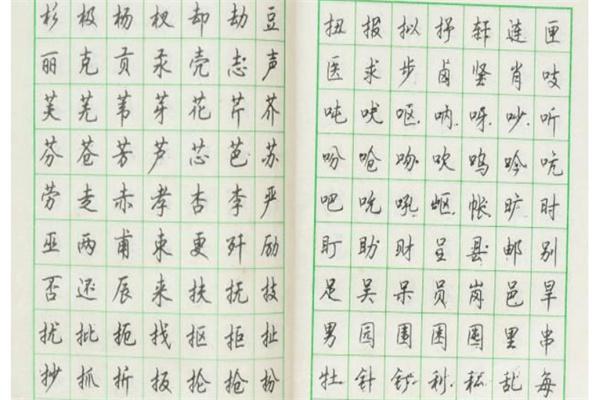 杉极杨杈却劫豆
丽克贡汞壳志声
芙芜苇芽花芹芥
芬苍芳芦芯芭苏
劳走赤孝杏李严
巫两甫束更歼励
否还辰来扶抚技
扰批扼找抠拒扯
抄抓折扳抡抢扮
扭报拟抒轩连匣
医求步卤肖吱
吨吠呕呐呀吵听
吩呛吻吹呜吟吭
吧吮吼岖帐旷时
盯助财呈县邮别
足吴呆员岗邑旱
男园围里串
牡针利私乱每